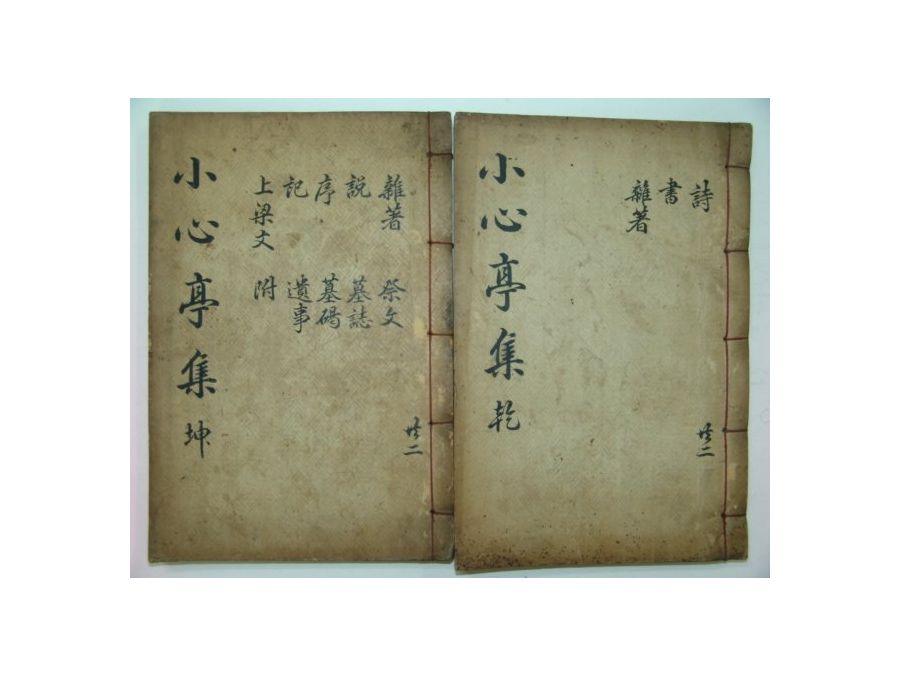 共二
詩
書
雜著
小心亭集 乾
共二
雜著
説
序
記
上梁文
祭文
墓誌
墓碣
遺事
附
小心亭集 坤